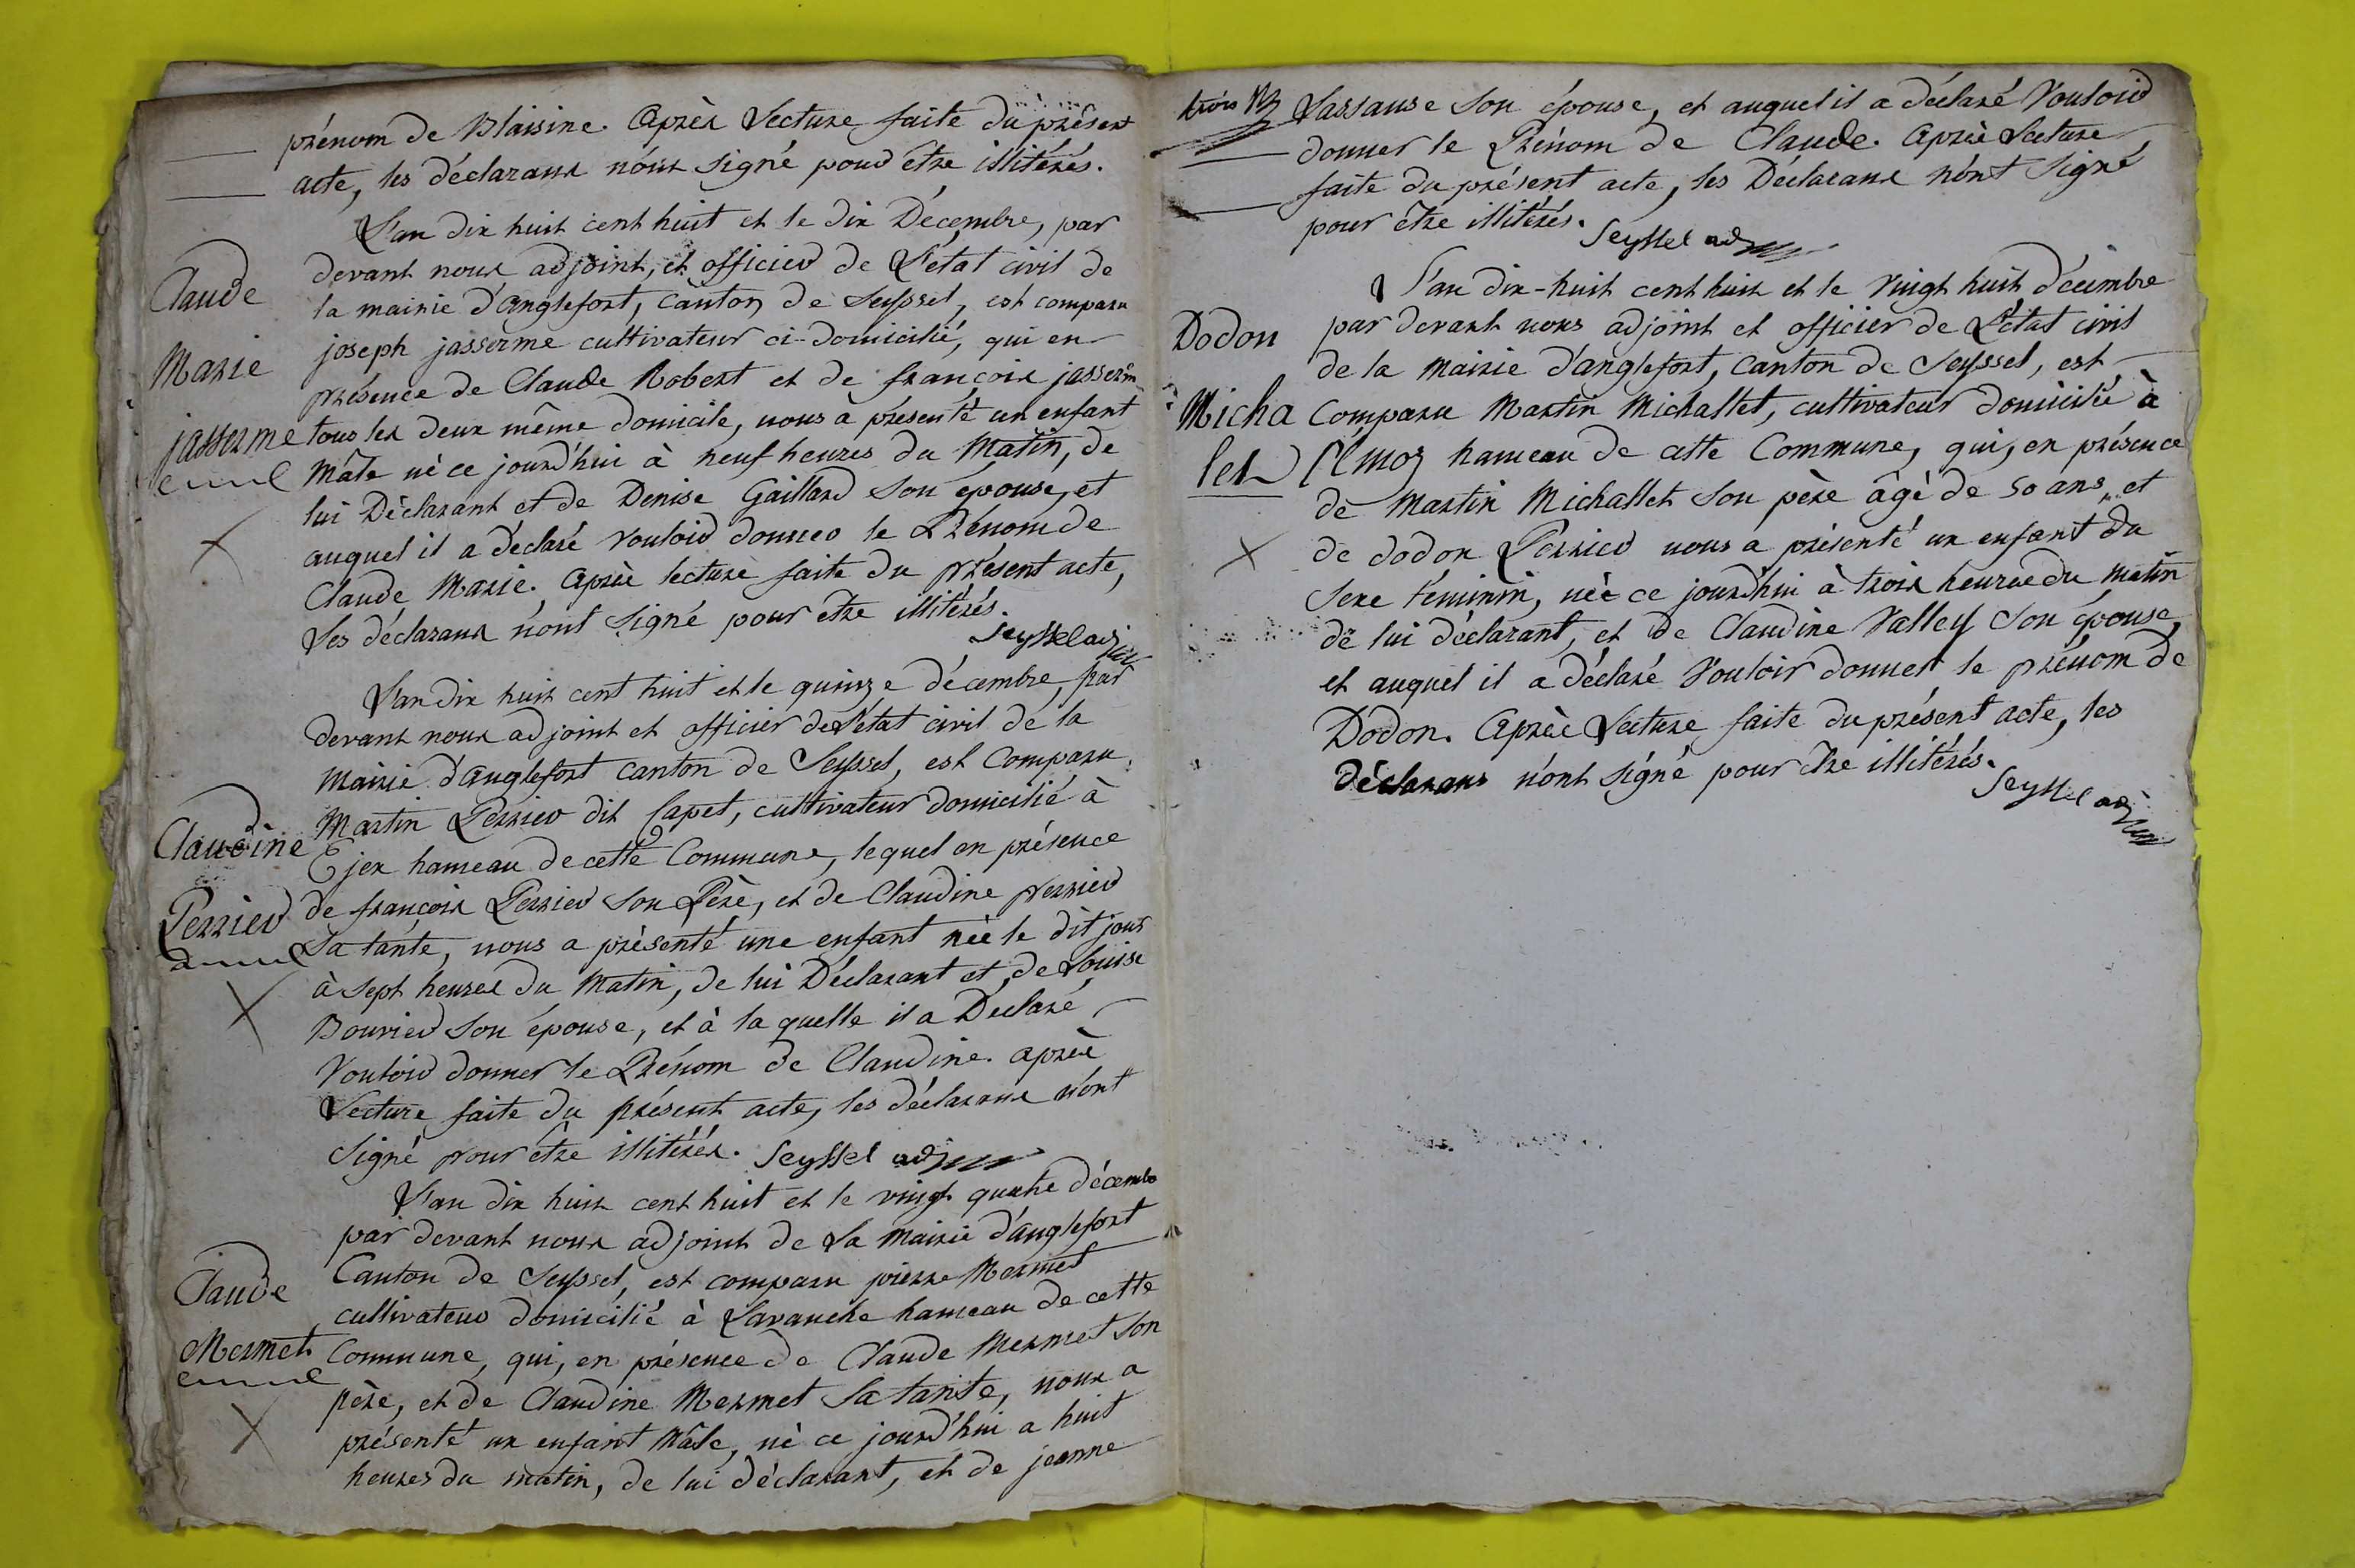 prénom de Blaisine. Après Lecture faite du présent
acte, les déclarans n'ont signé pour être illitérés.
L'an dix huit cent huit et le dix Décembre, par
devant nous adjoint, et officier de L'état civil de
Claude
la mairie d'anglefort, canton de Seyssel, est comparu
joseph jasserme cultivateur ci-domicilié, qui en
Marie
présence de Claude Robert et de françois jasserm
jasserme
tous les deux même domicile, nous a présenté un enfant
Mâle né ce jourd'hui à neuf heures du Matin, de
lui Déclarant et de Denise Gaillard son épouse, et
auquel il a déclaré vouloir donner le Prénom de
Claude Marie. Après lecture faite du présent acte,
Les déclarans n'ont signé pour être illitérés.
Seyssel adj
L'an dix huit cent huit et le quinze décembre, par
devant nous adjoint et officier de L'état civil de la
Mairie d'anglefort canton de Seyssel, est Comparu
Martin Perrier dit Capet, cultivateur domicilié à
Claudine
Ejex hameau de cette Commune, lequel en présence
Perrier
de françois Perrier son Père, et de Claudine perrier
Sa tante, nous a présenté une enfant née le dit jour
à Sept heures du Matin, de lui Déclarant et de Louise
Bouvier son épouse, et à laquelle il a Declaré
Vouloir donner le Prénom de Claudine. après
Lecture faite du présent acte, les déclarans n'ont
Signé pour être illitérés. Seyssel adj
L'an dix huit cent huit et le vingt quatre décembre
par devant nous adjoint de La mairie d'anglefort
Claude
Canton de Seyssel, est comparu pierre Mermet
cultivateur domicilié à Lavanche hameau de cette
Mermet
Commune, qui, en présence de Claude Mermet son
père, et de Claudine Mermet Sa tante, nous a
présenté un enfant Mâle, né ce jourd'hui a huit
heures du matin, de lui déclarant, et de jeanne
trois
Lassause son épouse, et auquel il a déclaré Vouloir
donner le Prénom de Claude. Après Lecture
faite du présent acte, les Déclarans n'ont Signé
pour être illitérés. Seyssel adj
L'an dix-huit cent huit et le Vingt huit décembre
Dodon
par devant nous adjoint et officier de L'état civil
de la Mairie d'anglefort, Canton de Seyssel, est
Micha
Comparu Martin Michallet, cultivateur domicilié à
let
hameau de cette Commune, qui, en présence
de Martin Michallet son père âgé de 50 ans, et
de dodon Perrier nous a présenté un enfant du
Sexe féminin, née ce jourd'hui à trois heures du Matin
de lui déclarant, et de Claudine Valley son épouse,
et auquel il a déclaré Vouloir donner le prénom de
Dodon. Après Lecture faite du présent acte, les
déclarans n'ont signé pour être illitérés.
Seyssel adj